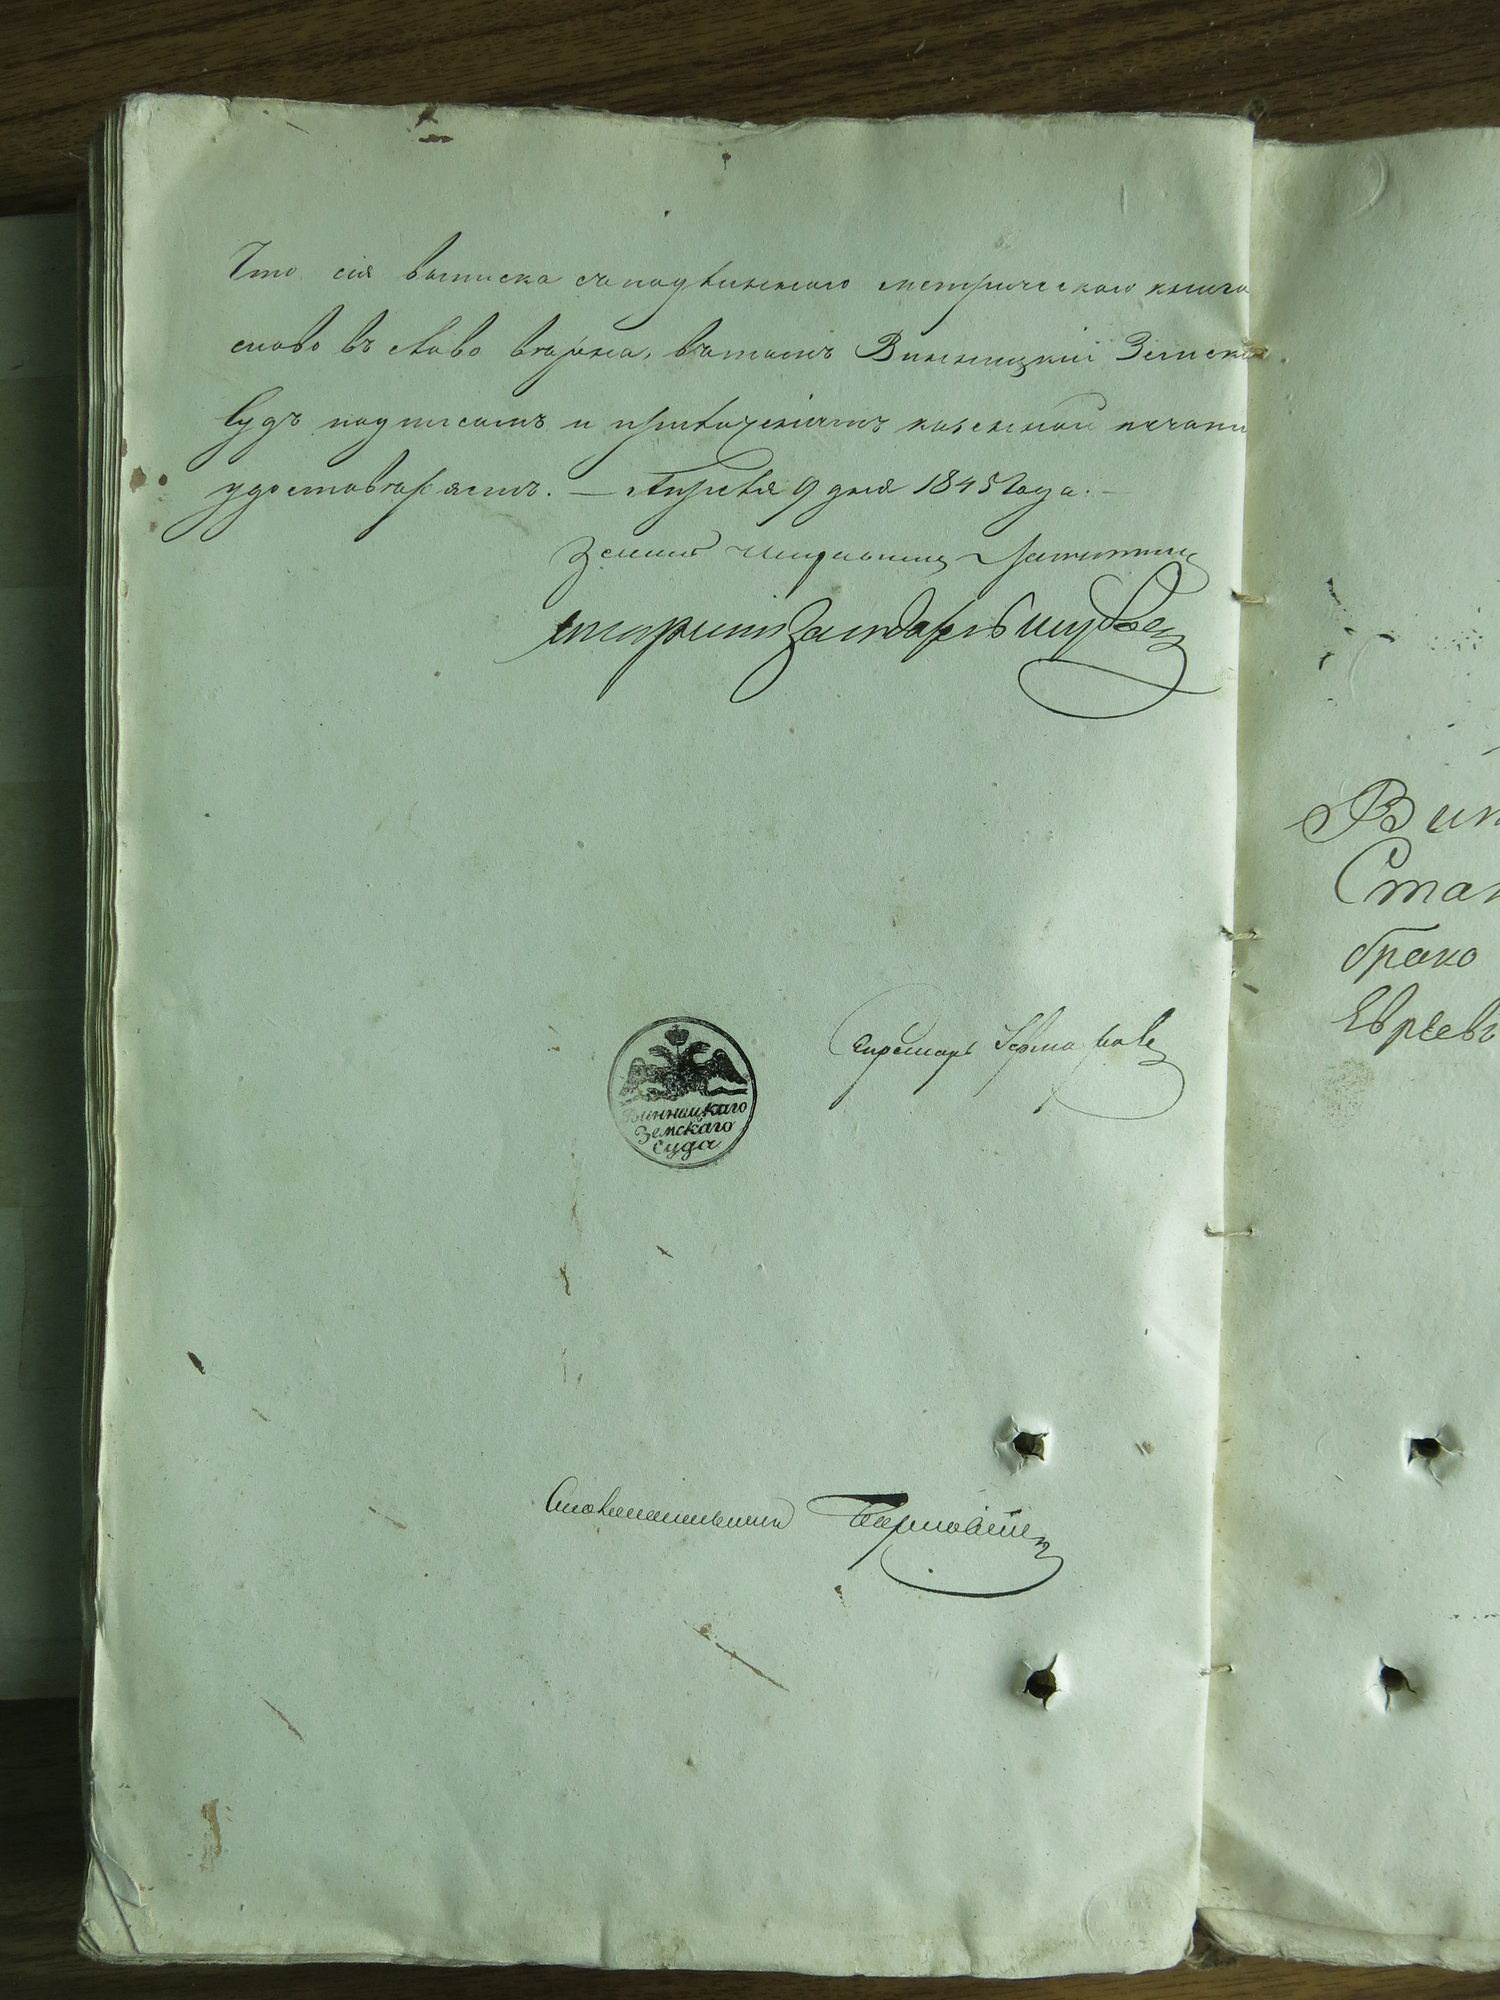 Что сія выписка съ подлинного метрического книгою
слово въ слово вѣрна, въ томъ Винницкій Земскій
Судъ подписомъ и приложеніемъ казенной печати
удостовѣряетъ. — Апрѣля 9 дня 1845 года. —
Земскій
Секретарь
Винницкаго
Земскаго
Суда
Столоначальникъ
Вин
Стан
брако
Евреевъ